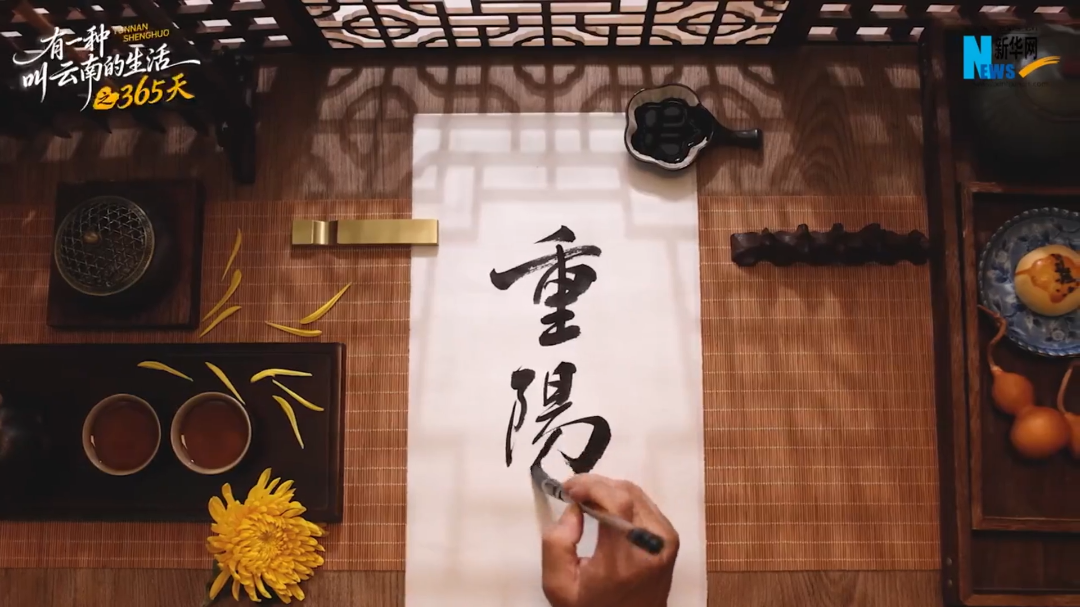 有一种
YUNNAN
SHENGHUO
叫云南的生活
之365天
新华网
NEWS
重
陽